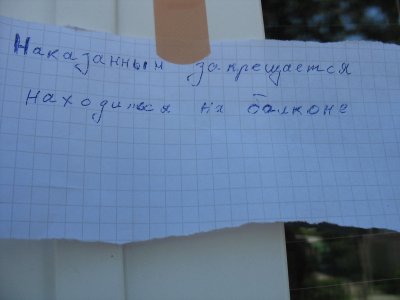 Наказанным запрещается
находится на балконе